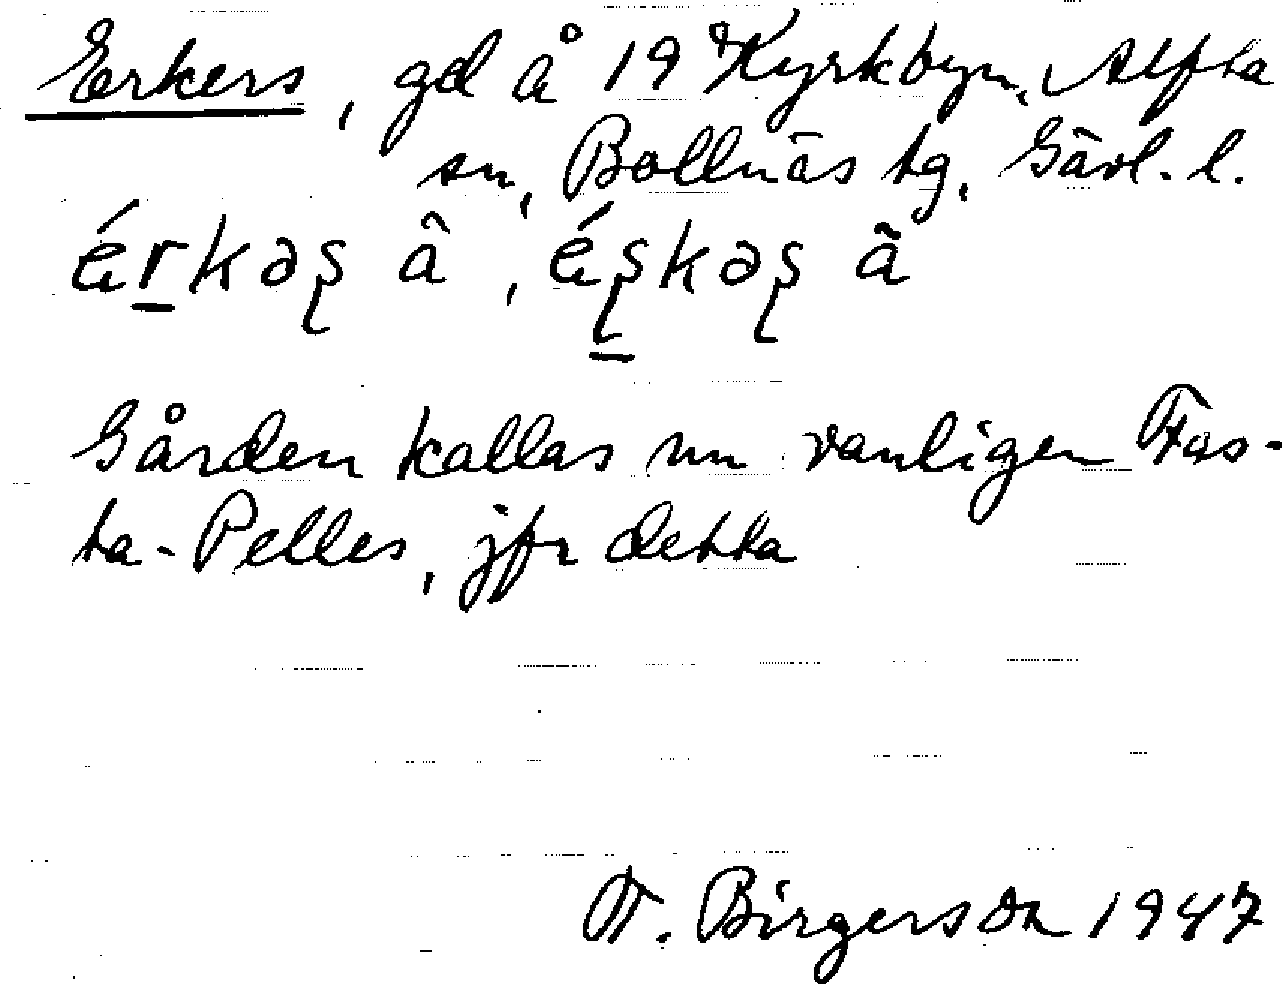 Erkers, gd å 19 Kyrkbyn, Alfta
sn, Bollnäs tg, Gävl. l.
érkəʂ â, éʂkəʂ ã
Gården kallas nu vanligen Fas-
ta-Pelles, jfr detta
T. Birgerson 1947